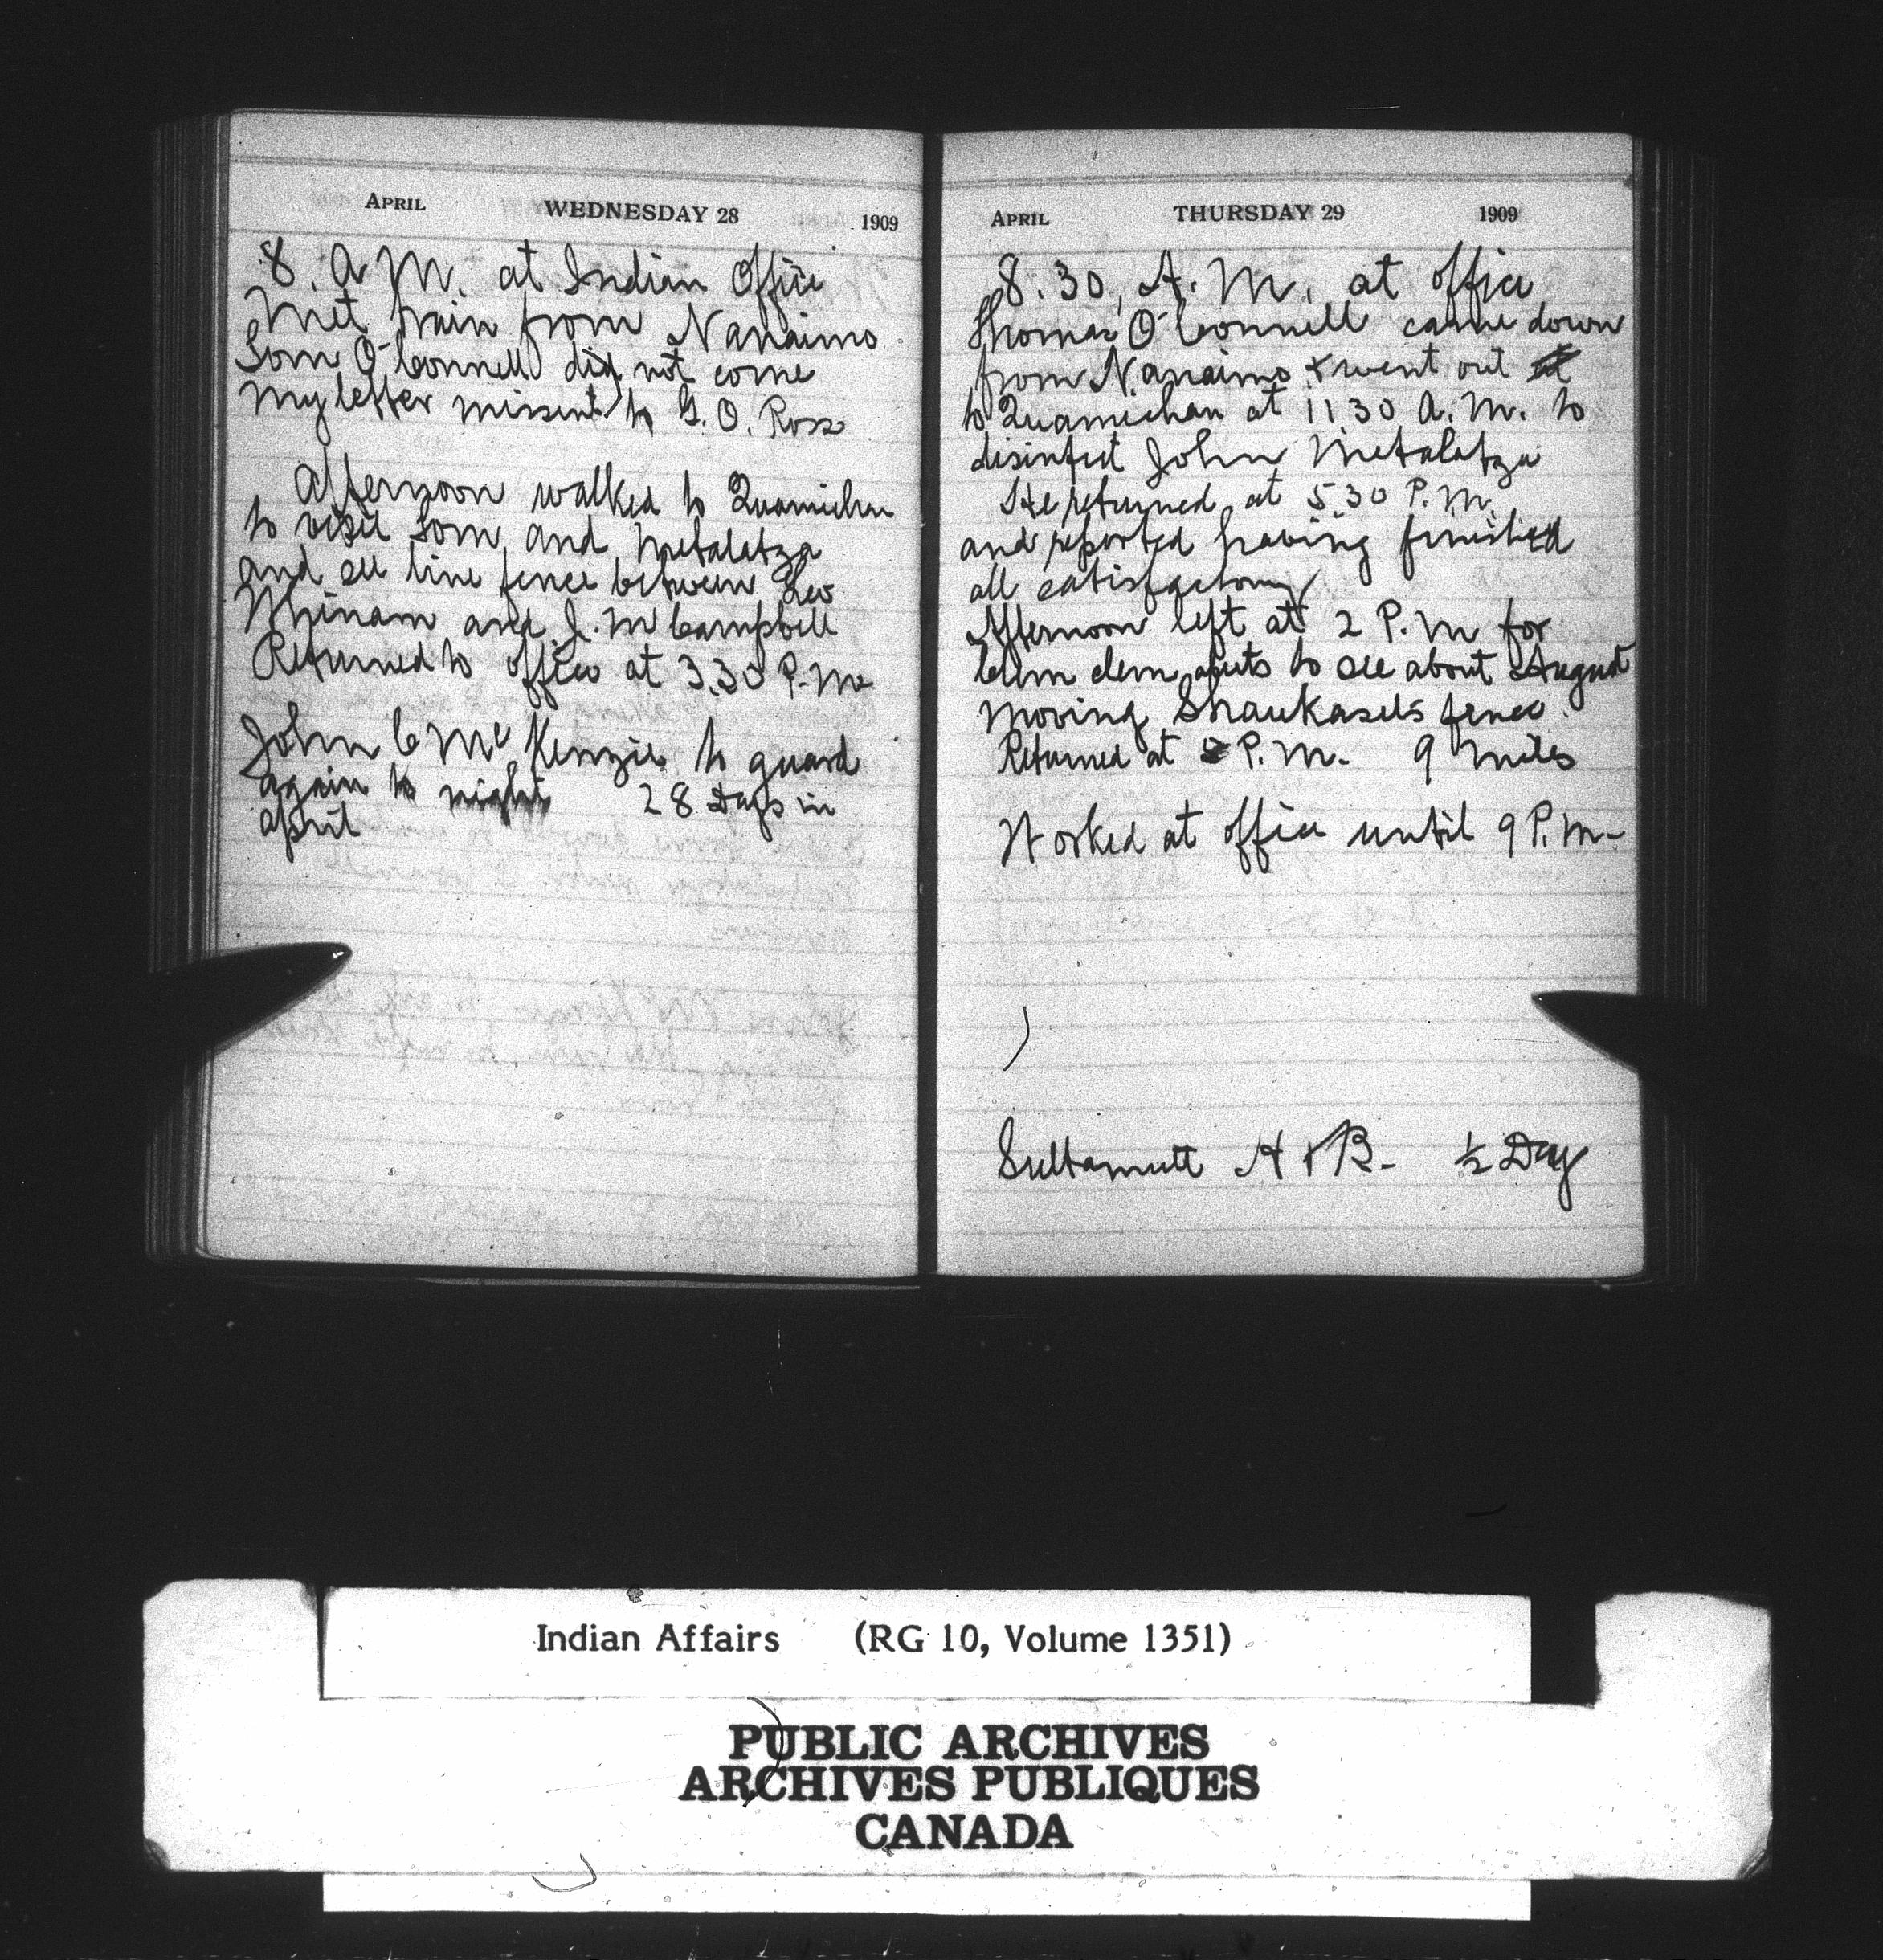 APRIL WEDNESDAY 28 1909
8. A M. at Indian Office
Met train from Nanaimo
Tom O'Connell did not come
my letter missent to G. O. Ross
Afternoon walked to Quamichan
to visit Tom and Metalatza
and see line fence between Leo
Whinam and J. M Campbell
Returned to office at 3.30 P.M
John C McKenzie to guard
again to night 28 Days in
April
APRIL THURSDAY 29 1909
8.30, A.M. at office
Thomas O'Connell came down
from Nanaimo & went out
to Quamichan at 11.30 A.M. to
disinfect John Metalatza
He returned at 5.30 P.M.
and reported having finished
all satisfactory
Afternoon left at 2 P.M for
Clem Clem aluts to see about August
moving Shaukasels fence
Returned at 5 P.M. 9 miles
Worked at office until 9 P.M-
Sultamutt H & B- ½ Day
Indian Affairs (RG 10, Volume 1351)
PUBLIC ARCHIVES
ARCHIVES PUBLIQUES
CANADA